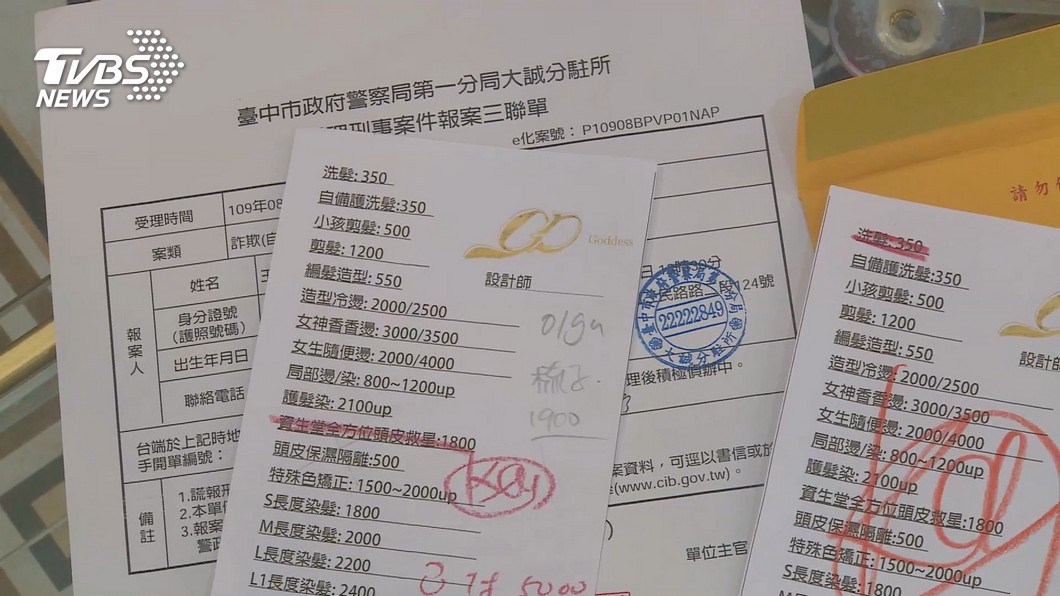 TVBS
NEWS
臺中市政府警察局第一分局大誠分駐所
理刑事案件報案三聯單
e化案號：P10908BPVP01NAP
受理時間
109年08
案類
詐欺(自
報案人
姓名
身分證號
(護照號碼)
出生年月日
聯絡電話
台端於上記時地
手開單編號：
備註
1.謊報刑
2.本單價
3.報案
警政
段124號
22222849
大誠分駐所
理後積極偵辦中。
案資料，可逕以書信或於
(www.cib.gov.tw)。
單位主官
請勿
洗髮:350
自備護洗髮:350
小孩剪髮:500
剪髮:1200
編髮造型:550
造型冷燙:2000/2500
女神香香燙:3000/3500
女生隨便燙:2000/4000
局部燙/染:800~1200up
護髮染:2100up
資生堂全方位頭皮救星:1800
頭皮保濕隔離:500
特殊色矯正:1500~2000up
S長度染髮:1800
M長度染髮:2000
L長度染髮:2200
L1長度染髮:2400
Goddess
設計師
olga
1900
5000
洗髮:350
自備護洗髮:350
小孩剪髮:500
剪髮:1200
編髮造型:550
造型冷燙:2000/2500
女神香香燙:3000/3500
女生隨便燙:2000/4000
局部燙/染:800~1200up
護髮染:2100up
資生堂全方位頭皮救星:1800
頭皮保濕隔離:500
特殊色矯正:1500~2000up
S長度染髮:1800
設計師